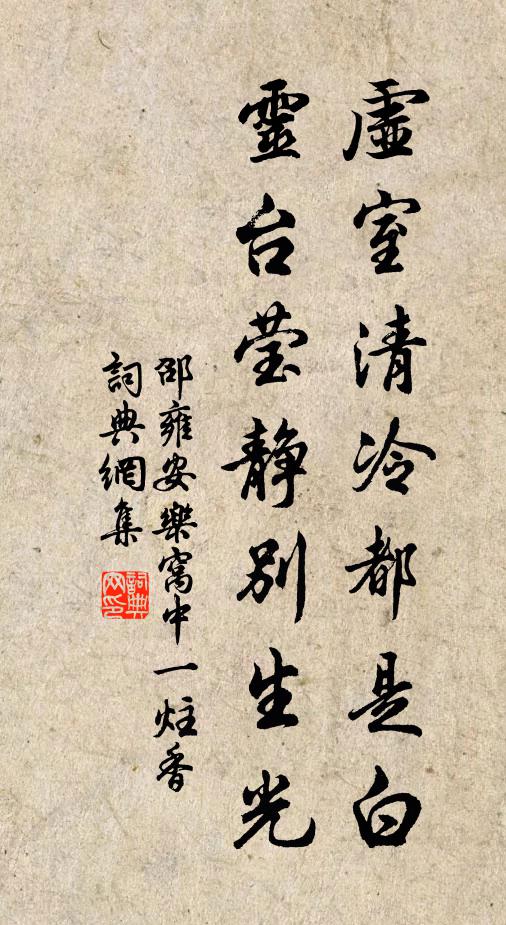 虛室清冷都是白
靈台莹静别生光
邵雍安樂窩中一炷香
詞典網集
詞典网印